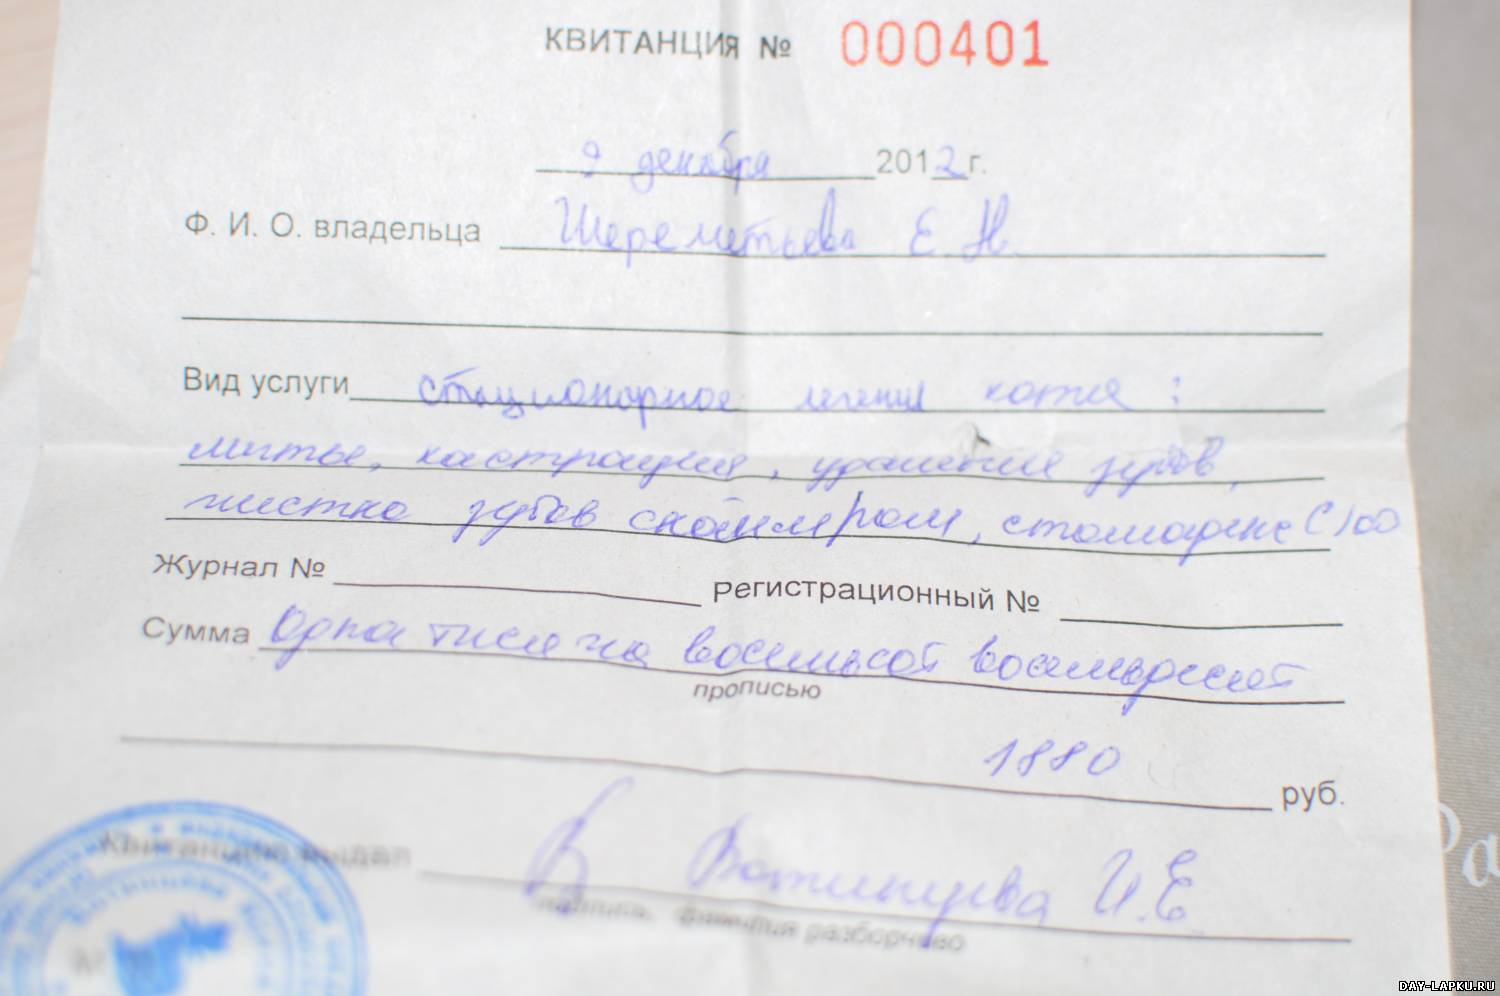 КВИТАНЦИЯ № 000401
9 декабря 2012 г.
Ф. И. О. владельца Шереметьева Е. Н.
Вид услуги стационарное лечение кота :
мытье, кастрация, удаление зубов,
чистка зубов скайлером, стомадекс (/)
Журнал № Регистрационный №
Сумма Одна тысяча восемьсот восемьдесят
прописью
1880 руб.
Квитанцию выдал В Вотинцева И.Е
подпись, фамилия разборчиво
Ра
DAY-LAPKU.RU